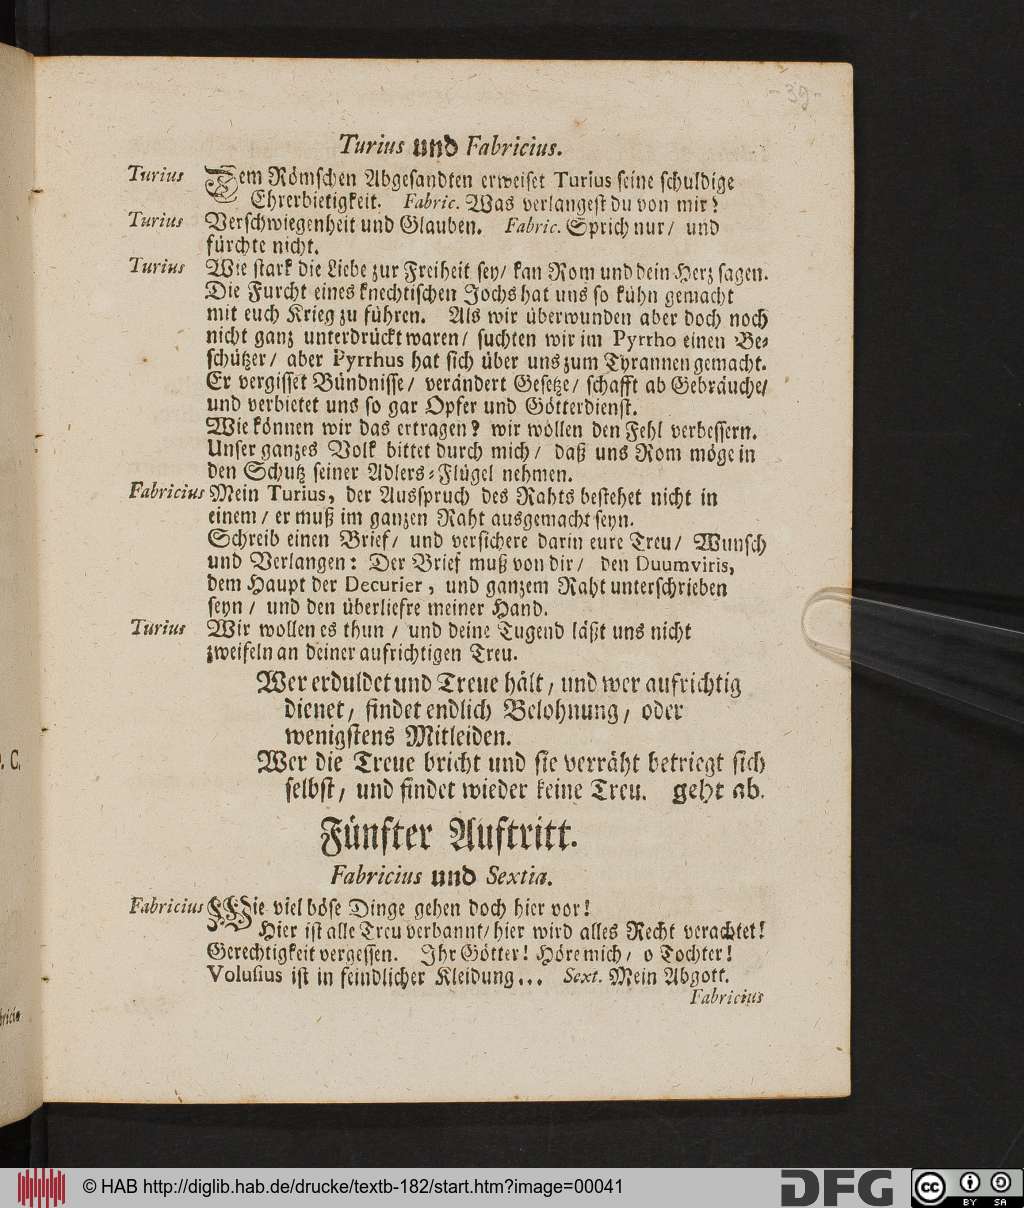 - 39 -
Turius und Fabricius.
Turius Dem Römschen Abgesandten erweiset Turius seine schuldige
Ehrerbietigkeit. Fabric. Was verlangest du von mir?
Turius Verschwiegenheit und Glauben. Fabric. Sprich nur/ und
fürchte nicht.
Turius Wie stark die Liebe zur Freiheit sey/ kan Rom und dein Herz sagen.
Die Furcht eines knechtischen Jochs hat uns so kühn gemacht
mit euch Krieg zu führen. Als wir überwunden aber doch noch
nicht ganz unterdrückt waren/ suchten wir im Pyrrho einen Be-
schützer/ aber Pyrrhus hat sich über uns zum Tyrannen gemacht.
Er vergisset Bündnisse/ verändert Gesetze/ schafft ab Gebräuche/
und verbietet uns so gar Opfer und Götterdienst.
Wie können wir das ertragen? wir wöllen den Fehl verbessern.
Unser ganzes Volk bittet durch mich/ daß uns Rom möge in
den Schutz seiner Adlers-Flügel nehmen.
Fabricius Mein Turius, der Ausspruch des Rahts bestehet nicht in
einem/ er muß im ganzen Raht ausgemacht seyn.
Schreib einen Brief/ und versichere darin eure Treu/ Wunsch
und Verlangen: Der Brief muß von dir/ den Duumviris,
dem Haupt der Decurier, und ganzem Raht unterschrieben
seyn/ und den überliefre meiner Hand.
Turius Wir wollen es thun/ und deine Tugend läßt uns nicht
zweifeln an deiner aufrichtigen Treu.
Wer erduldet und Treue hält/ und wer aufrichtig
dienet/ findet endlich Belohnung/ oder
wenigstens Mitleiden.
Wer die Treue bricht und sie verräht betriegt sich
selbst/ und findet wieder keine Treu. geht ab.
Fünfter Auftritt.
Fabricius und Sextia.
Fabricius Wie viel böse Dinge gehen doch hier vor!
Hier ist alle Treu verbannt/ hier wird alles Recht verachtet!
Gerechtigkeit vergessen. Ihr Götter! Höre mich/ o Tochter!
Volusius ist in feindlicher Kleidung... Sext. Mein Abgott.
Fabricius
© HAB http://diglib.hab.de/drucke/textb-182/start.htm?image=00041
DFG
cc BY SA